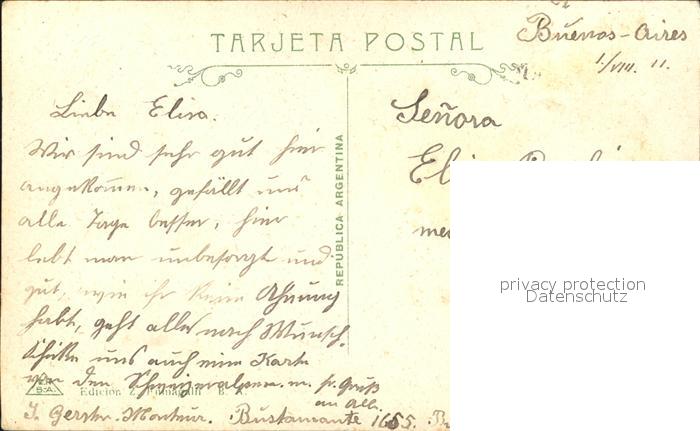 TARJETA POSTAL
Buenos-Aires
1/VIII. 11.
Liebe Elisa.
Wir sind sehr gut hier
angekommen, gefällt uns
alle Tage besser, hier
lebt man unbesorgt und
gut, wie ihr keine Ahnung
habt, geht alles nach Wunsch.
Schike uns auch eine Karte
von den Schweizeralpen. m. fr. Gruß
an Alle.
J. Monteur. Bustamante 1655.
Señora
REPUBLICA ARGENTINA
Edición Z. Fumagalli B. A.
privacy protection
Datenschutz